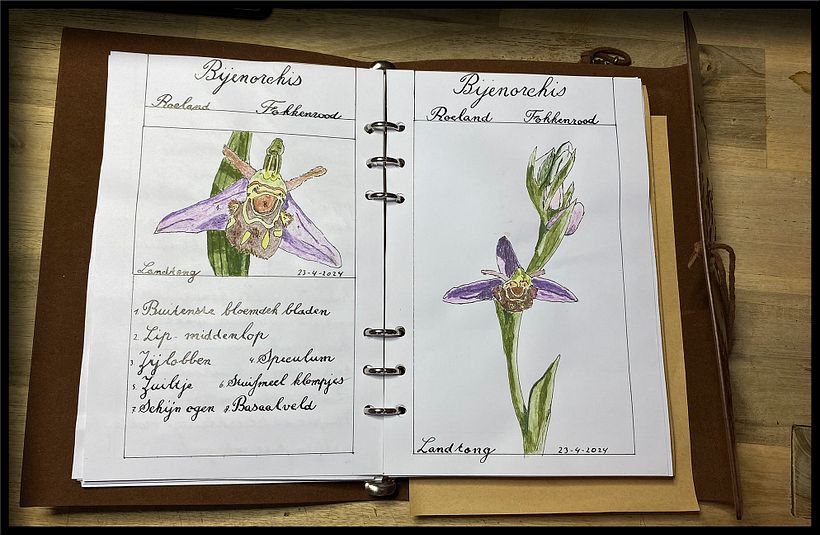 Bijenorchis
Roeland Fokkenrood
Landtong 23-4-2024
1. Buitenste bloemdek bladen
2. Lip- middenlop
3 Zijlobben 4. Speculum
5. Zuiltje 6 Stuifmeel klompjes
7. Schijn ogen 8. Basaalveld
Bijenorchis
Roeland Fokkenrood
Landtong 23-4-2024